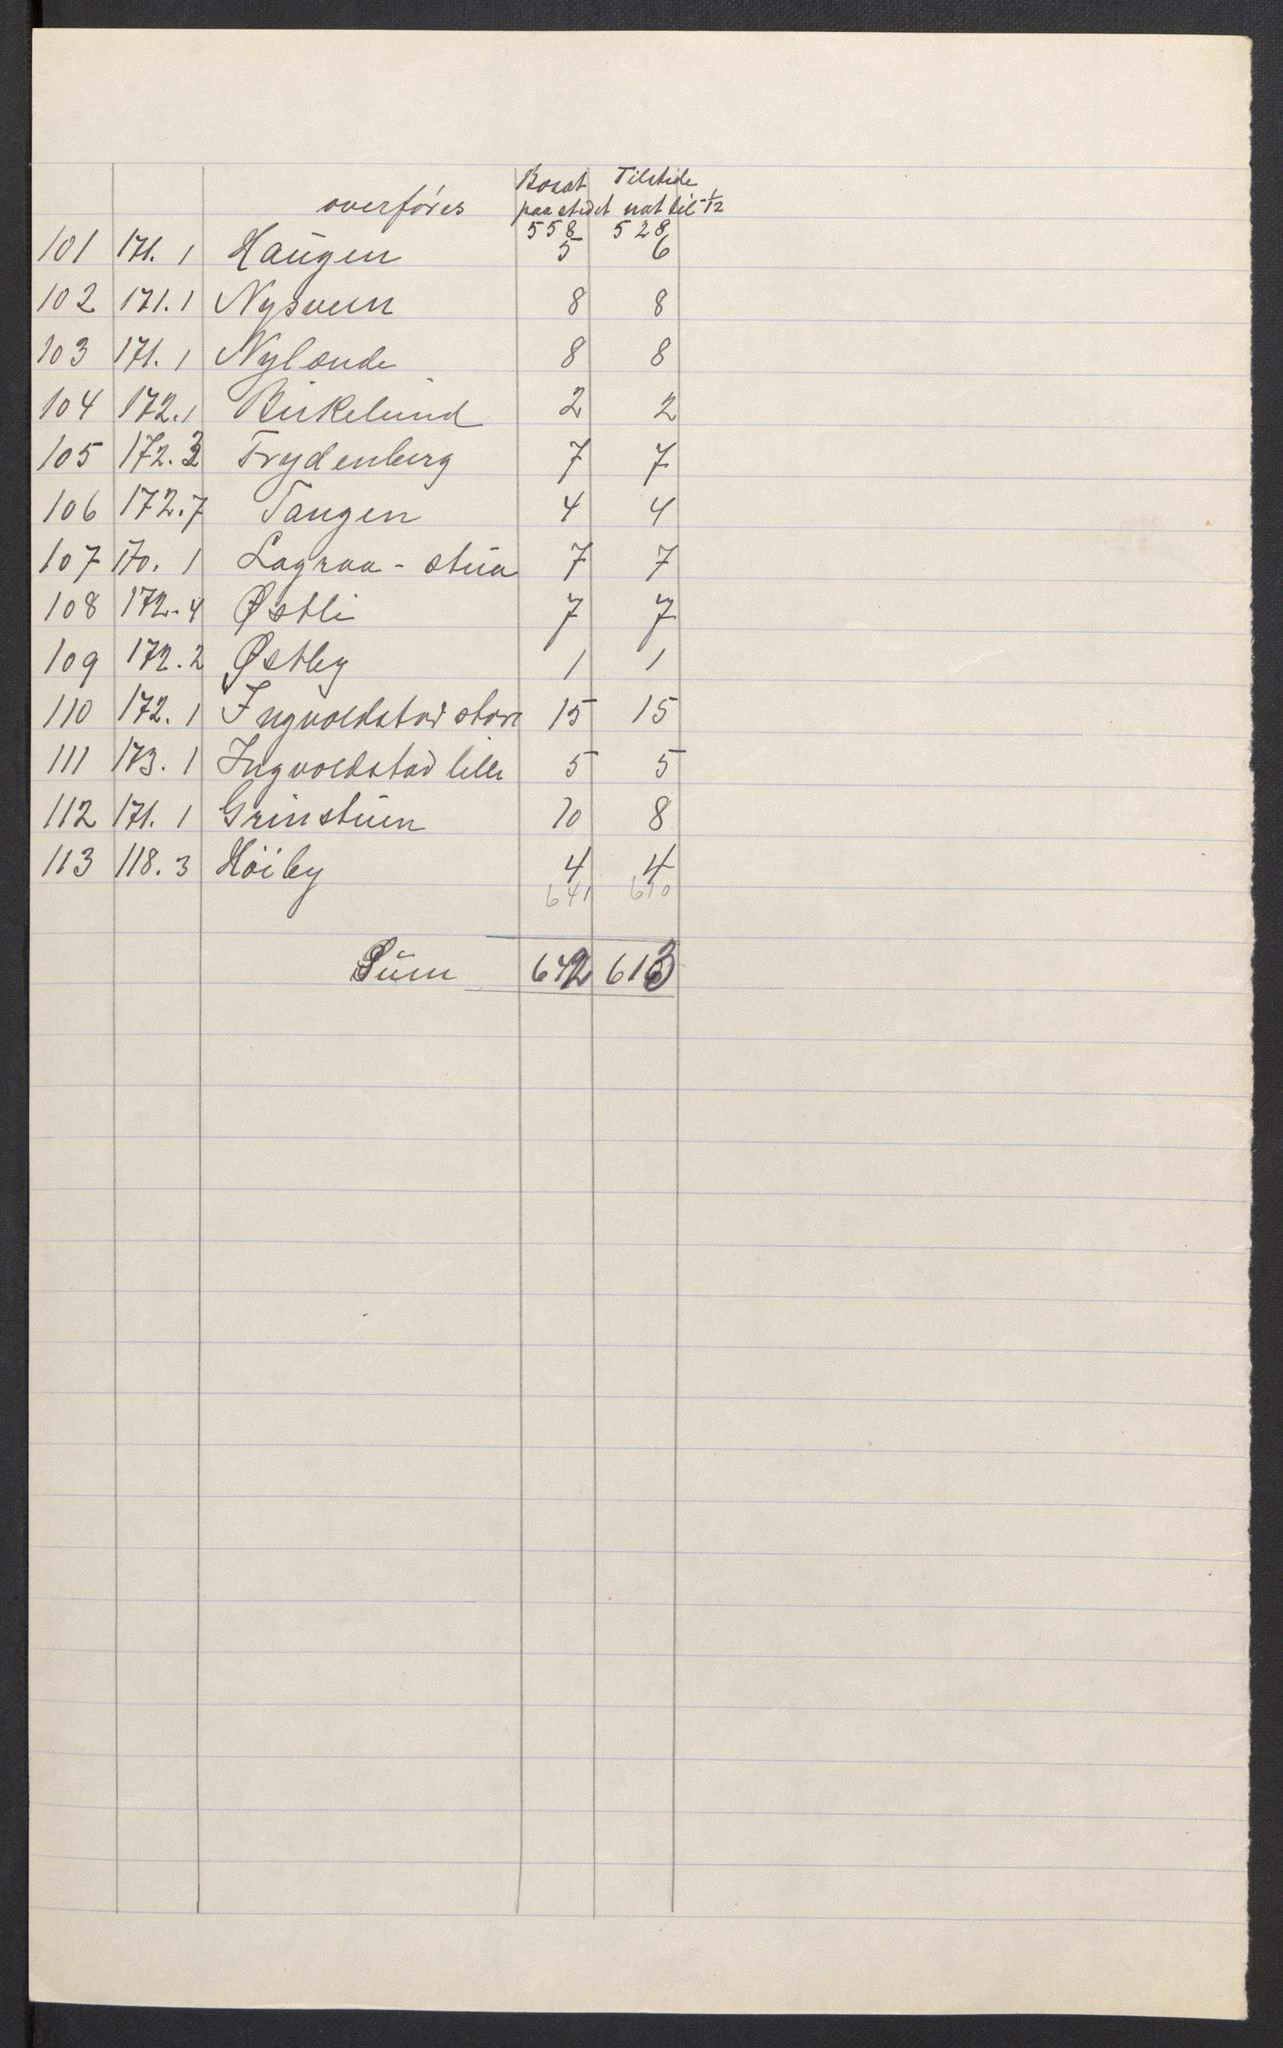 Bosat Tilstede
overföres paa stedet nat til 1/12
558 528
101 171. 1 Haugen 5 6
102 171. 1 Nysveen 8 8
103 171. 1 Nylænde 8 8
104 172. 1 Birkelund 2 2
105 172. 3 Frydenberg 7 7
106 172. 7 Tangen 4 4
107 170. 1 Lagraa - stua 7 7
108 172. 4 Østli 7 7
109 172. 2 Østby 1 1
110 172. 1 Ingvoldstad store 15 15
111 173. 1 Ingvoldstad lille 5 5
112 171. 1 Grinstuen 10 8
113 118. 3 Höiby 4 4
641 610
Sum 642 613